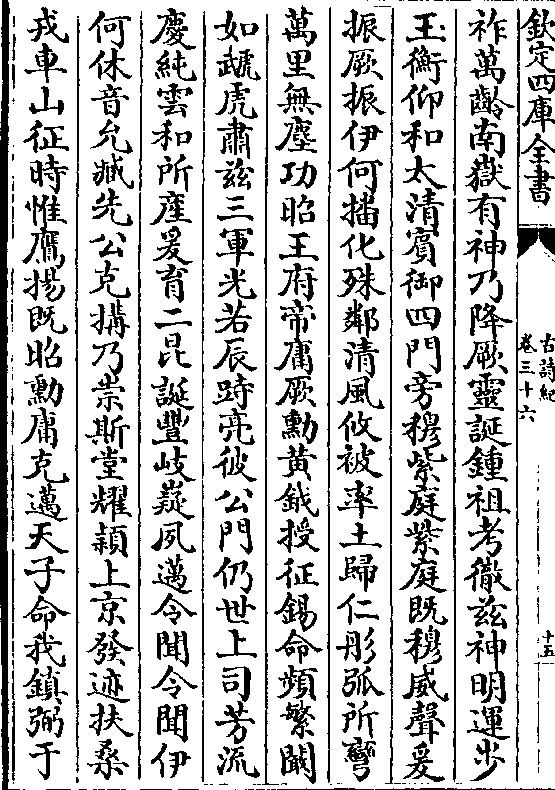 欽定四庫全書
古詩紀
卷三十六
十五
祚萬齡南嶽有神乃降厥靈誕鍾祖考徽兹神明運步
玉衡仰和太清賔御四門旁穆紫庭紫庭既穆威聲爰
振厥振伊何播化殊鄰清風攸被率土歸仁彤弧所彎
萬里無塵功昭王府帝庸厥勳黄鉞授征錫命頻繁闞
如虓虎肅兹三軍光若辰跱亮彼公門仍世上司芳流
慶純雲和所産爰育二昆誕豐岐嶷夙邁令聞令聞伊
何休音允臧先公克搆乃崇斯堂耀穎上京發迹扶桑
戎車山征時惟鷹揚既昭勳庸克邁天子命我鎮弼于